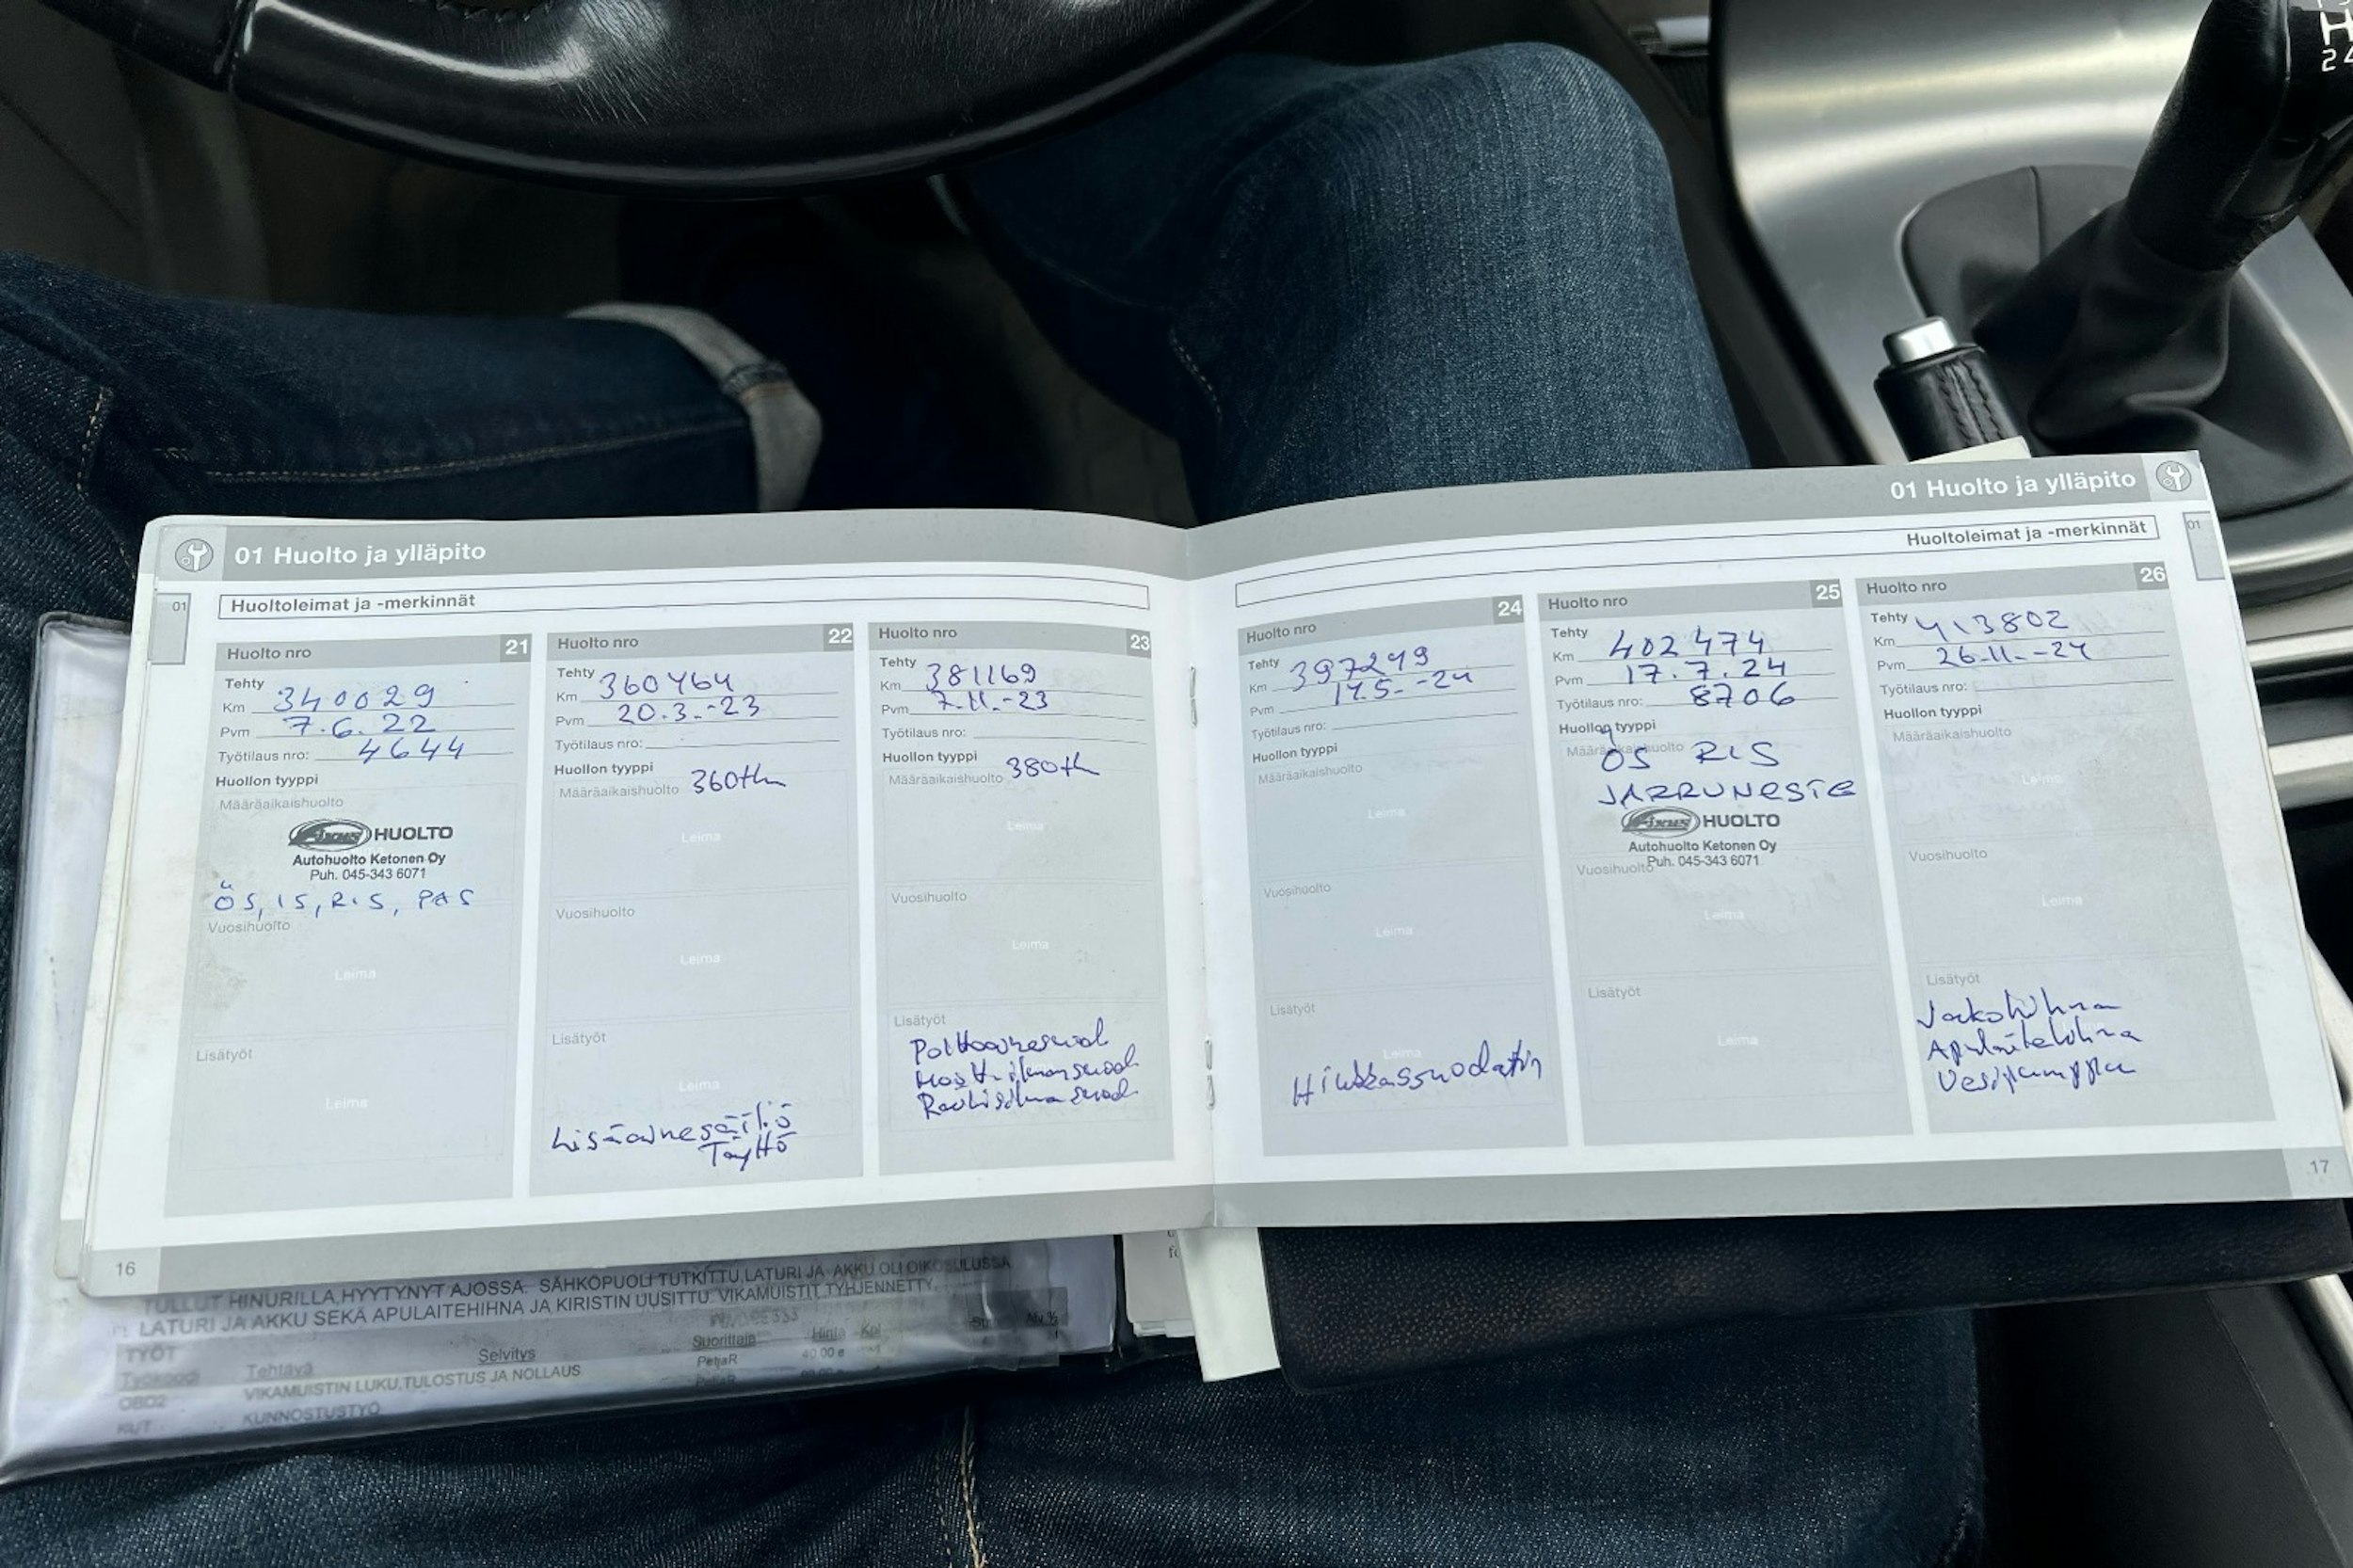 H
2 4
01 Huolto ja ylläpito
01
Huoltoleimat ja -merkinnät
Huolto nro 21
Tehty
Km 340029
Pvm 7.6.22
Työtilaus nro: 4644
Huollon tyyppi
Määräaikaishuolto
Fixus HUOLTO
Autohuolto Ketonen Oy
Puh. 045-343 6071
ÖS, IS, RIS, PAS
Vuosihuolto
Leima
Lisätyöt
Leima
Huolto nro 22
Tehty
Km 360464
Pvm 20.3.-23
Työtilaus nro:
Huollon tyyppi
Määräaikaishuolto 360th
Leima
Vuosihuolto
Leima
Lisätyöt
Leima
Lisäainesäiliö
Täyttö
Huolto nro 23
Tehty
Km 381169
Pvm 7.11.-23
Työtilaus nro:
Huollon tyyppi
Määräaikaishuolto 380th
Leima
Vuosihuolto
Leima
Lisätyöt
Polttoainesuod
Moott.ilmansuod
Raitisilmasuod
16
01 Huolto ja ylläpito
01
Huoltoleimat ja -merkinnät
Huolto nro 24
Tehty
Km 397249
Pvm 14.5.-24
Työtilaus nro:
Huollon tyyppi
Määräaikaishuolto
Leima
Vuosihuolto
Leima
Lisätyöt
Leima
Hiukkassuodatin
Huolto nro 25
Tehty
Km 402474
Pvm 17.7.24
Työtilaus nro: 8706
Huollon tyyppi
Määräaikaishuolto
ÖS RIS
JARRUNESTE
Fixus HUOLTO
Autohuolto Ketonen Oy
Puh. 045-343 6071
Vuosihuolto
Leima
Lisätyöt
Leima
Huolto nro 26
Tehty
Km 413802
Pvm 26.11.-24
Työtilaus nro:
Huollon tyyppi
Määräaikaishuolto
Leima
Vuosihuolto
Leima
Lisätyöt
Jakohihna
Apulaitehihna
Vesipumppu
17
TULLUT HINURILLA,HYYTYNYT AJOSSA. SÄHKÖPUOLI TUTKITTU,LATURI JA AKKU OLI OIKOSULUSSA
LATURI JA AKKU SEKÄ APULAITEHIHNA JA KIRISTIN UUSITTU. VIKAMUISTIT TYHJENNETTY.
TYÖT
Työkoodi Tehtävä Selvitys Suorittaja Hinta Kpl Alv %
OBD2 VIKAMUISTIN LUKU,TULOSTUS JA NOLLAUS PetjaR 40.00 e
KUT KUNNOSTUSTYÖ PetjaR